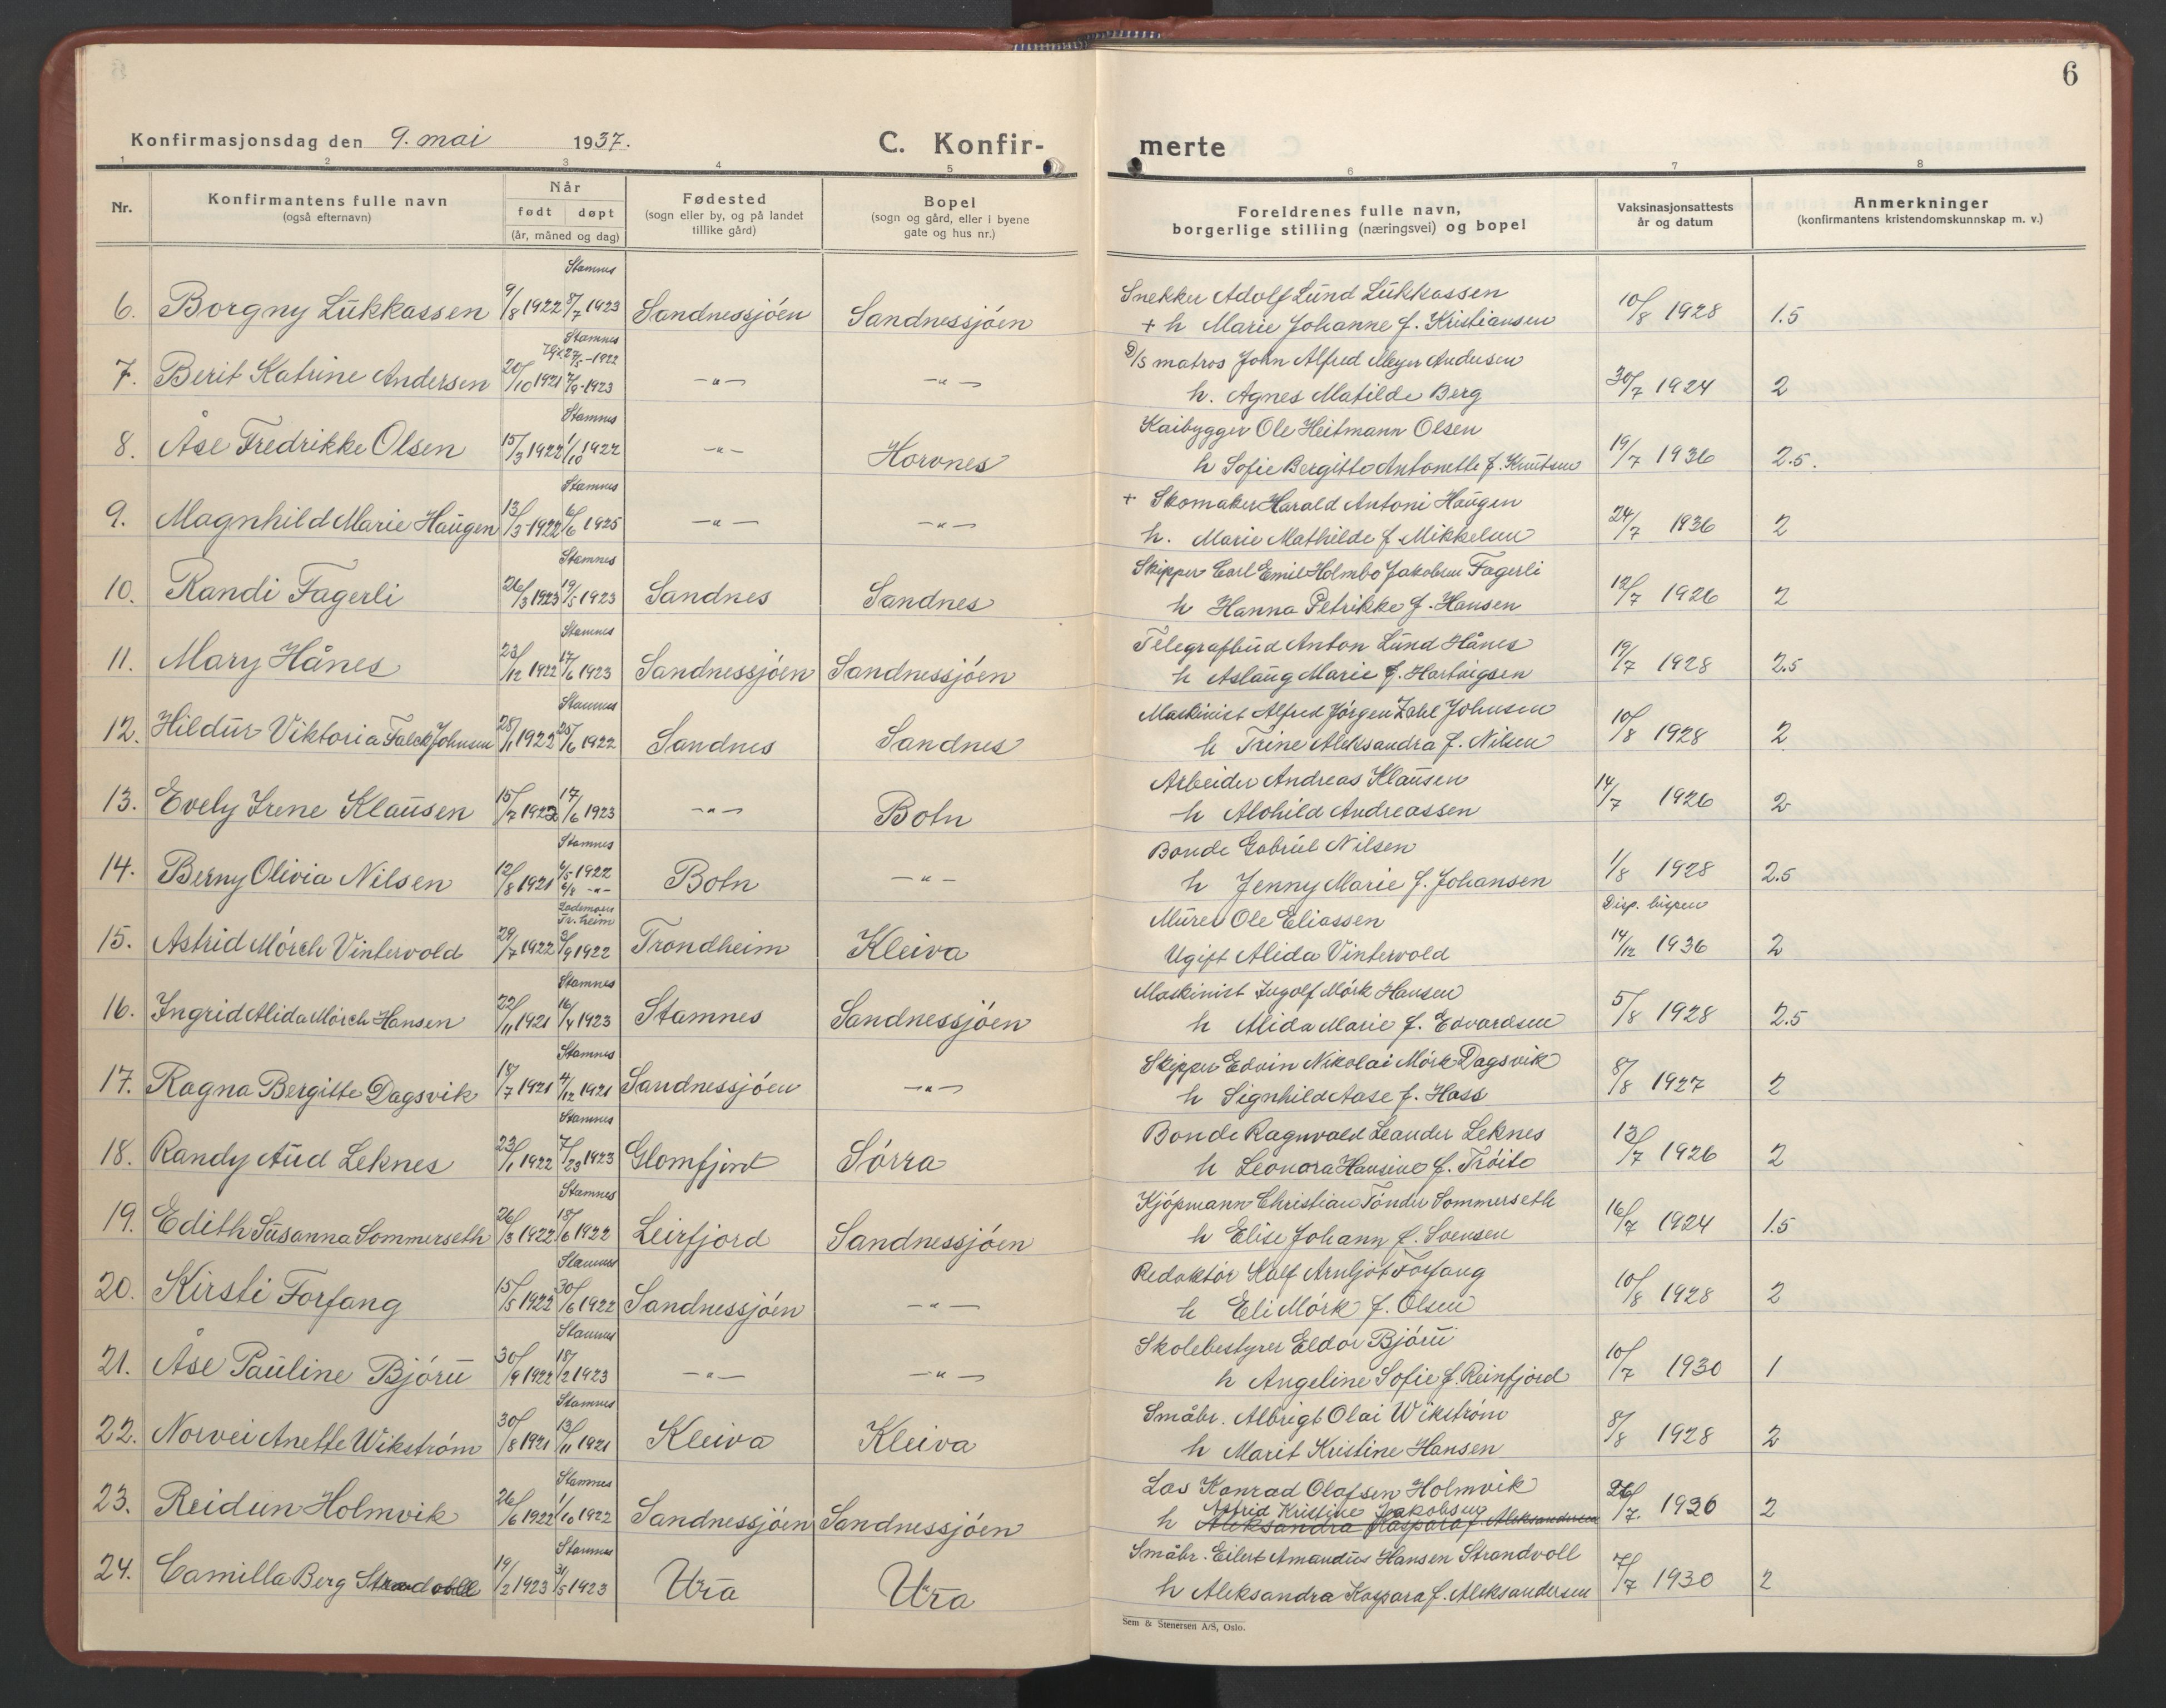 6
Konfirmasjonsdag den 9. mai 1937.
C. Konfir-
merte
1 2 3 4 5 6 7 8
Nr.
Konfirmantens fulle navn
(også efternavn)
Når
født døpt
(år, måned og dag)
Fødested
(sogn eller by, og på landet
tillike gård)
Bopel
(sogn og gård, eller i byene
gate og hus nr.)
Foreldrenes fulle navn,
borgerlige stilling (næringsvei) og bopel
Vaksinasjonsattests
år og datum
Anmerkninger
(konfirmantens kristendomskunnskap m. v.)
Stamnes
6. Borgny Lukkassen 9/8 1922 8/7 1923 Sandnessjöen Sandnessjöen
Snekker Adolf Lund Lukkassen
+ h Marie Johanne f. Kristiansen 10/8 1928 1.5
Stamnes
7. Berit Katrine Andersen 20/10 1921 2/9-1923 -"- -"-
D/S matros John Alfred Meyer Andersen
h. Agnes Matilde Berg 30/7 1924 2
Stamnes
8. Åse Fredrikke Olsen 15/3 1922 1/10 1922 -"- Horvnes
Kaibygger Ole Heitmann Olsen
h Sofie Bergitte Antonette f. Knutsen 19/7 1936 2.5.
Stamnes
9. Magnhild Marie Haugen 13/3-1922 6/6 1925 -"- -"-
+ Skomaker Harald Antoni Haugen
h. Marie Mathilde f. Mikkelsen 24/7 1936 2
Stamnes
10. Randi Fagerli 26/3 1923 19/5 1923 Sandnes Sandnes
Skipper Carl Emil Holmbo Jakobsen Fagerli
h Hanna Petrikke f. Hansen 12/7 1926 2
Stamnes
11. Mary Hånes 23/12 1922 17/6 1923 Sandnessjöen Sandnessjöen
Telegrafbud Anton Lund Hånes
h Aslaug Marie f. Hartvigsen 19/7 1928 2.5
Stamnes
12. Hildur Viktoria Falck Johnsen 28/1 1922 25/6 1922 Sandnes Sandnes
Maskinist Alfred Jörgen Zahl Johnsen
h Trine Aleksandra f. Nilsen 10/8 1928 2
13. Evely Irene Klausen 15/7 1922 17/6 1923 -"- Botn
Arbeider Andreas Klausen
h Alvhild Andreassen 14/7 1926 2
Stamnes
14. Berny Olivia Nilsen 12/8 1921 Botn -"-
Bonde Gabriel Nilsen
h Jenny Marie f. Johansen 1/8 1928 2.5
Lademoen
Tr.heim
15. Astrid Mörch Vintervold 29/7 1922 3/9 1922 Trondheim Kleiva
Murer Ole Eliassen
Ugift Alida Vintervold
Disp. bispen
14/12 1936 2
Stamnes
16. Ingrid Alida Mörch Hansen 22/11 1921 16/4 1923 Stamnes Sandnessjöen
Maskinist Ingolf Mörk Hansen
h Alida Marie f. Edvardsen 5/8 1928 2.5
Stamnes
17. Ragna Bergitte Dagsvik 18/7 1921 4/12 1921 Sandnessjöen -"-
Skipper Edvin Nikolai Mörk Dagsvik
h Signhild Aase f. Hass 8/8 1927 2
Stamnes
18. Randy Aud Leknes 23/1 1922 7/23 1923 Glomfjord Sörra
Bonde Ragnvald Leander Leknes
h Leonora Hansine f. Tröite 13/7 1926 2
Stamnes
19. Edith Susanna Sommerseth 26/3 1922 18/6 1922 Leirfjord Sandnessjöen
Kjöpmann Christian Tönder Sommerseth
h Elise Johann f. Svensen 16/7 1924 1.5
Stamnes
20. Kirsti Forfang 15/5 1922 30/6 1922 Sandnessjöen -"-
Redaktör Kalf Arnljot Forfang
h Eli Mörk f. Olsen 10/8 1928 2
Stamnes
21. Åse Pauline Björu 30/9 1922 18/2 1923 -"- -"-
Skolebestyrer Eldor Björu
h Angeline Sofie f. Reinfjord 10/7 1930 1
Stamnes
22. Norvei Anette Wikström 30/8 1921 13/11 1921 Kleiva Kleiva
Småbr. Albrigt Olai Wikström
h Marit Kristine Hansen 8/8 1928 2
Stamnes
23. Reidun Holmvik 26/6 1922 1/10 1922 Sandnessjöen Sandnessjöen
Los Konrad Olafsen Holmvik
Astrid Kristine Jakobsen
h Aleksandra Kaspara f. Aleksandersen 26/7. 1936 2
Stamnes
24. Camilla Berg Strandvoll 19/2 1923 31/5 1923 Ura Ura
Småbr. Eilert Amandus Hansen Strandvoll
h Aleksandra Kaspara f. Aleksandersen 7/7 1930 2
Sem & Stenersen A/S, Oslo.